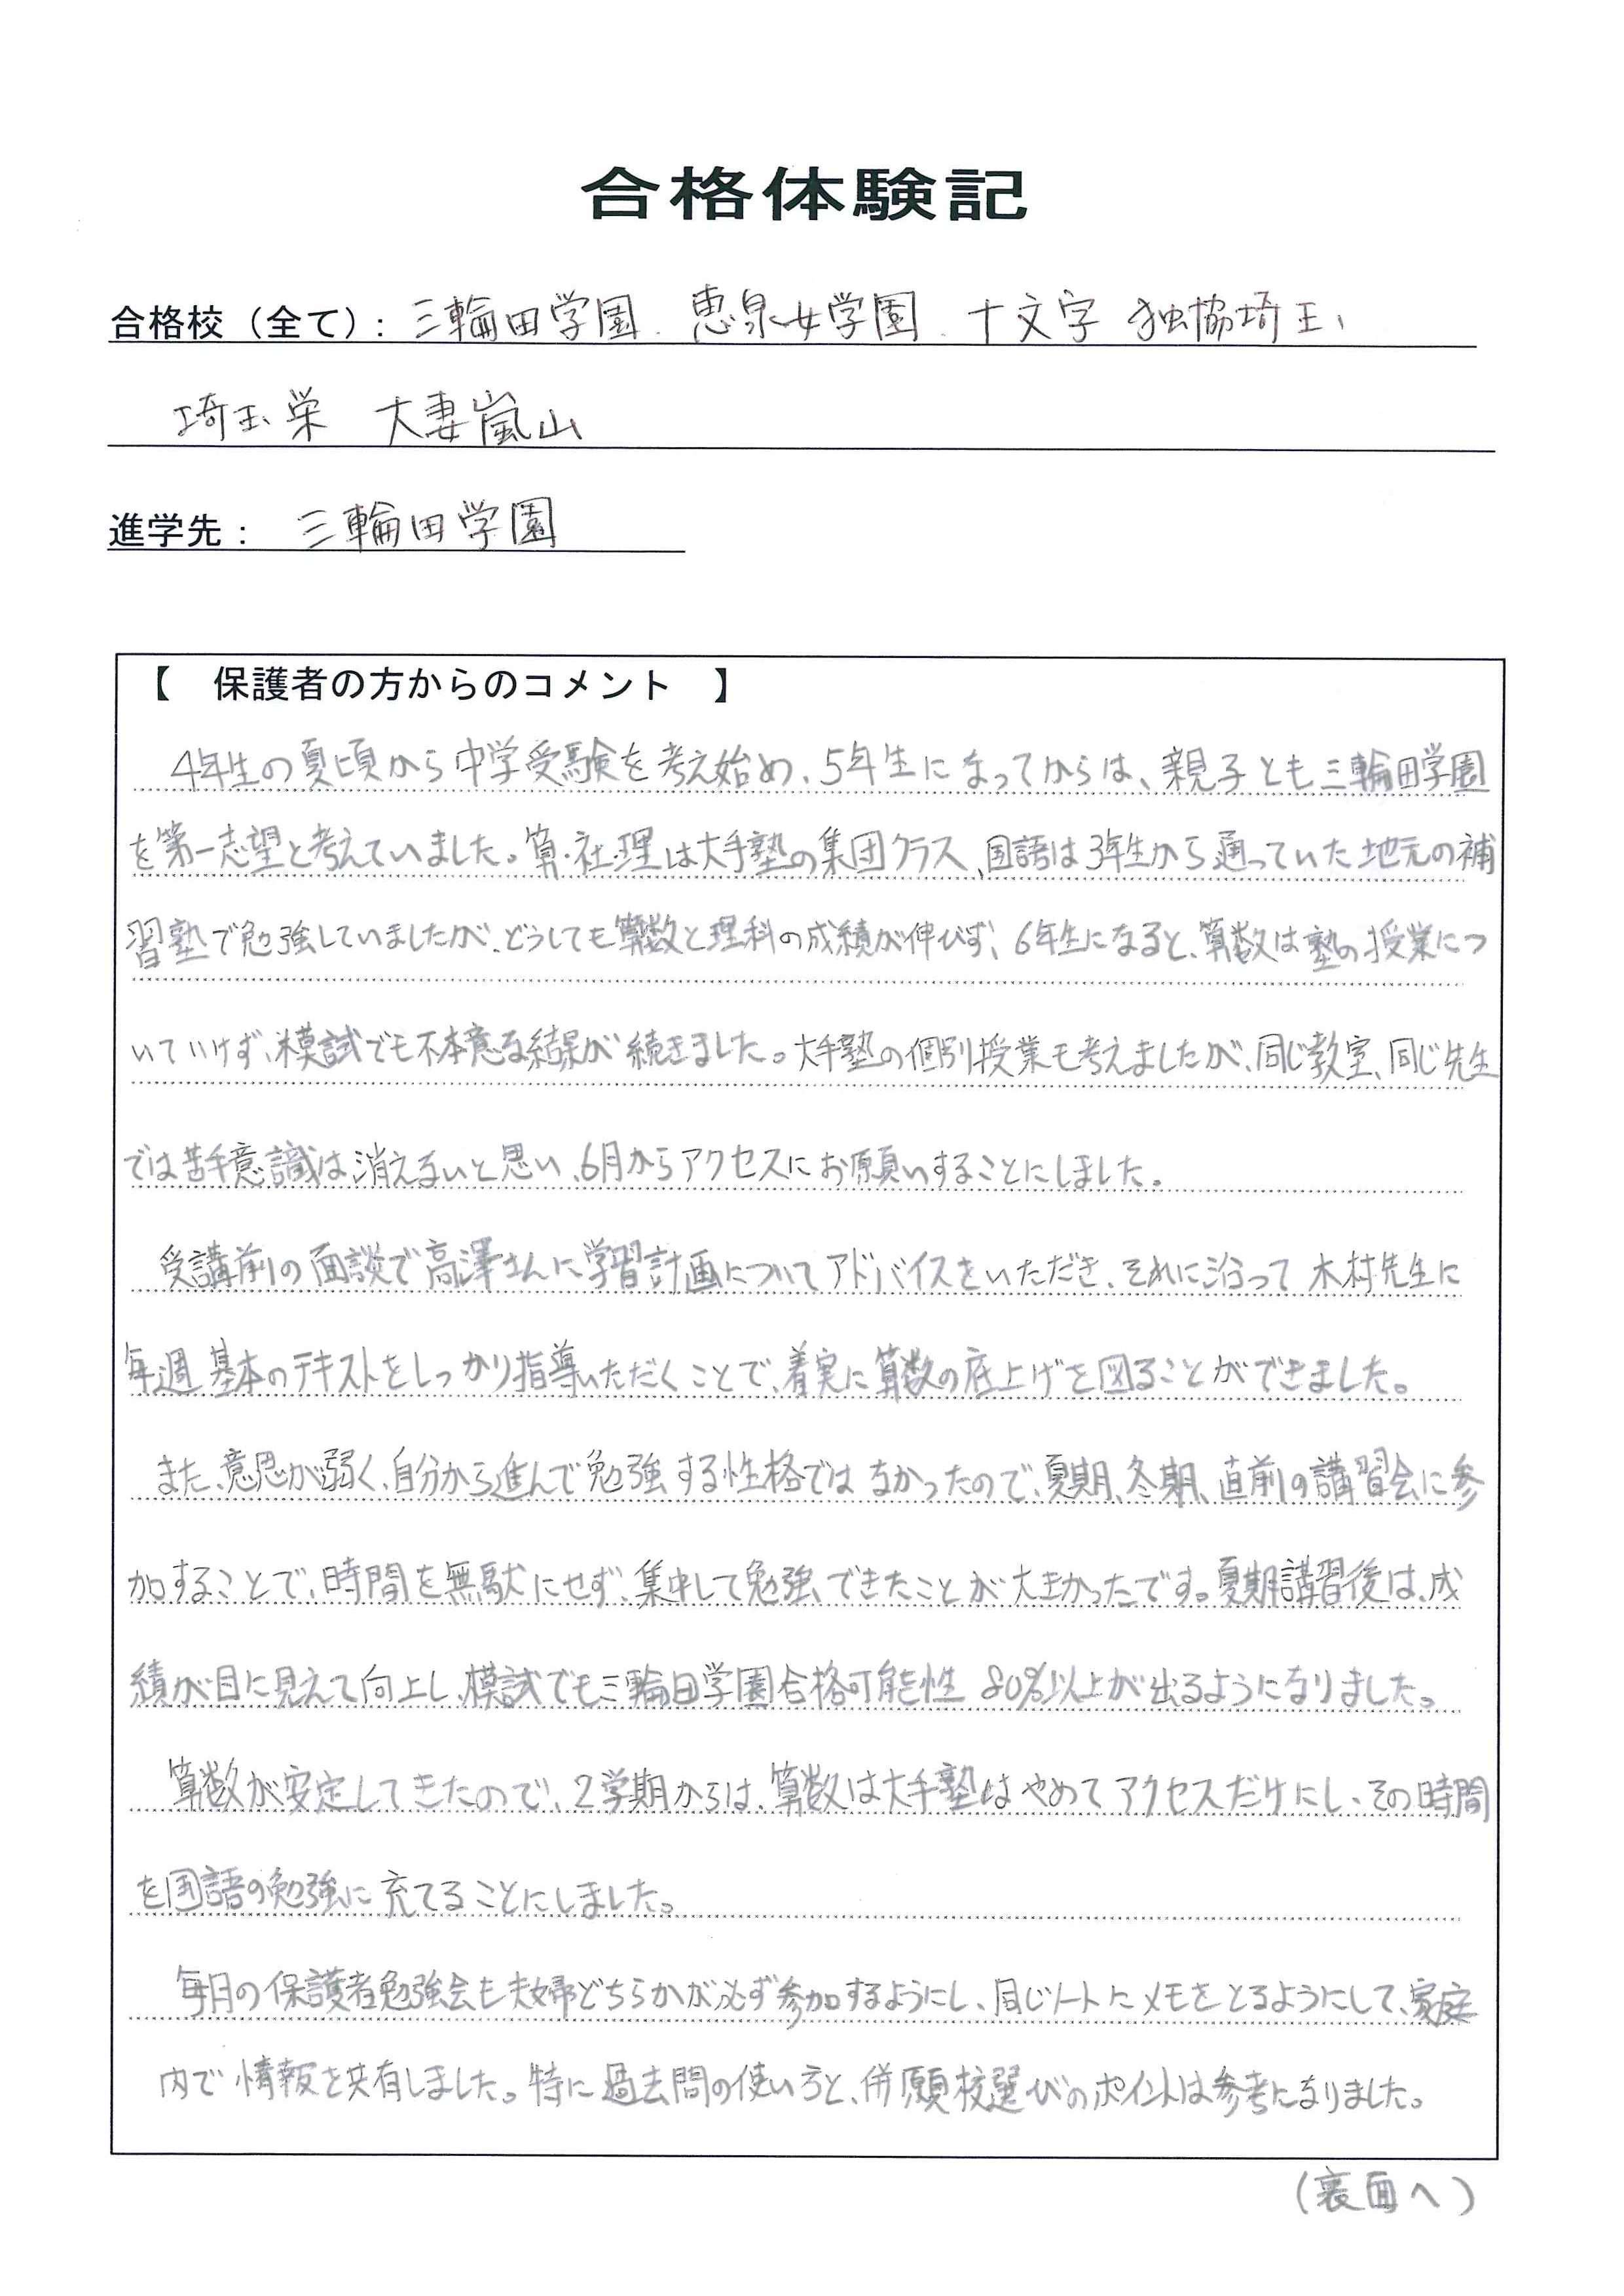 合格体験記
合格校（全て）: 三輪田学園、恵泉女学園、十文字 独協埼玉、
埼玉栄 大妻嵐山
進学先： 三輪田学園
【　保護者の方からのコメント　】
4年生の夏頃から中学受験を考え始め、5年生になってからは、親子とも三輪田学園
を第一志望と考えていました。算・社・理は大手塾の集団クラス、国語は3年生から通っていた地元の補
習塾で勉強していましたが、どうしても算数と理科の成績が伸びず、6年生になると、算数は塾の授業につ
いていけず、模試でも不本意な結果が続きました。大手塾の個別授業も考えましたが、同じ教室、同じ先生
では苦手意識は消えないと思い、6月からアクセスにお願いすることにしました。
受講前の面談で高澤さんに学習計画についてアドバイスをいただき、それに沿って木村先生に
毎週基本のテキストをしっかり指導いただくことで、着実に算数の底上げを図ることができました。
また、意思が弱く、自分から進んで勉強する性格ではなかったので、夏期、冬期、直前の講習会に参
加することで、時間を無駄にせず、集中して勉強できたことが大きかったです。夏期講習後は、成
績が目に見えて向上し、模試でも三輪田学園合格可能性80%以上が出るようになりました。
算数が安定してきたので、2学期からは、算数は大手塾はやめてアクセスだけにし、その時間
を国語の勉強に充てることにしました。
毎月の保護者勉強会も夫婦どちらかが必ず参加するようにし、同じノートにメモをとるようにして、家庭
内で情報を共有しました。特に過去問の使い方と、併願校選びのポイントは参考になりました。
（裏面へ）